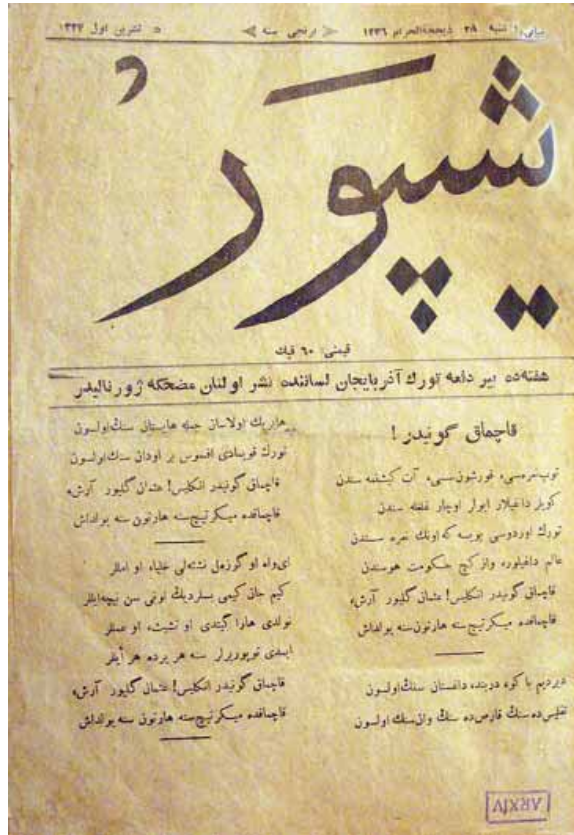 شنبه ٢٨ ذیحجة‌الحرام ١٣٣٦ برنجی سنه ٥ تشرین اول ١٣٣٤
شیپور
قیمتی: ٦٠ قپك
هفته‌ده بیر دفعه تورك آذربایجان لساننده نشر اولنان مضحکه ژورنالیدر
قاچماق گونیدر !
توپ نعره‌سی، قورشون سسی، آت کیشنه سندن
کویلر داغیلار ایولر اوچار غلغله سندن
تورك اوردوسی بویسه که اونك نعره سندن
عالم داغیلور، واز کچ حکومت هوسندن
قاچماق گونیدر انکلیس! عثمان گلیور آرش،
قاچماقده میکرتیچ سنه هارتون سنه یولداش
دیردیم با کوه دربند، داغستان سنڭ اولسون
تفلیس‌ده سنڭ قارص‌ده سنڭ وان سنڭ اولسون
هابریك اولاسان جمله هایستان سنڭ اولسون
تورك قویمادی افسوس بر اودان سنڭ اولسون
قاچماق گونیدر انکلیس! عثمان گلیور آرش،
قاچماقده میکرتیچ سنه هارتون سنه یولداش
ای‌واه او گوزه‌ل نشئه‌لی خلیا، او امللر
کیم جان کیمی بسلردیڭ اونی سن نیچه ایللر
نولدی هارا گیتدی او تشبث، او عمللر
ایمدی توپوریرلر سنه هر یرده هر ایللر
قاچماق گونیدر انکلیس! عثمان گلیور آرش،
قاچماقده میکرتیچ سنه هارتون سنه یولداش
ARXIV